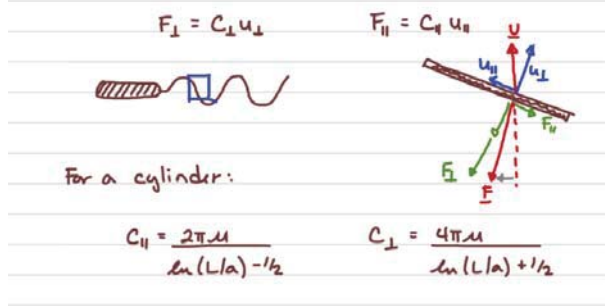 F⊥ = C⊥ u⊥
F∥ = C∥ u∥
U
u∥
u⊥
F∥
F⊥
F
For a cylinder:
C∥ = 2πμ / ln(L/a) - 1/2
C⊥ = 4πμ / ln(L/a) + 1/2